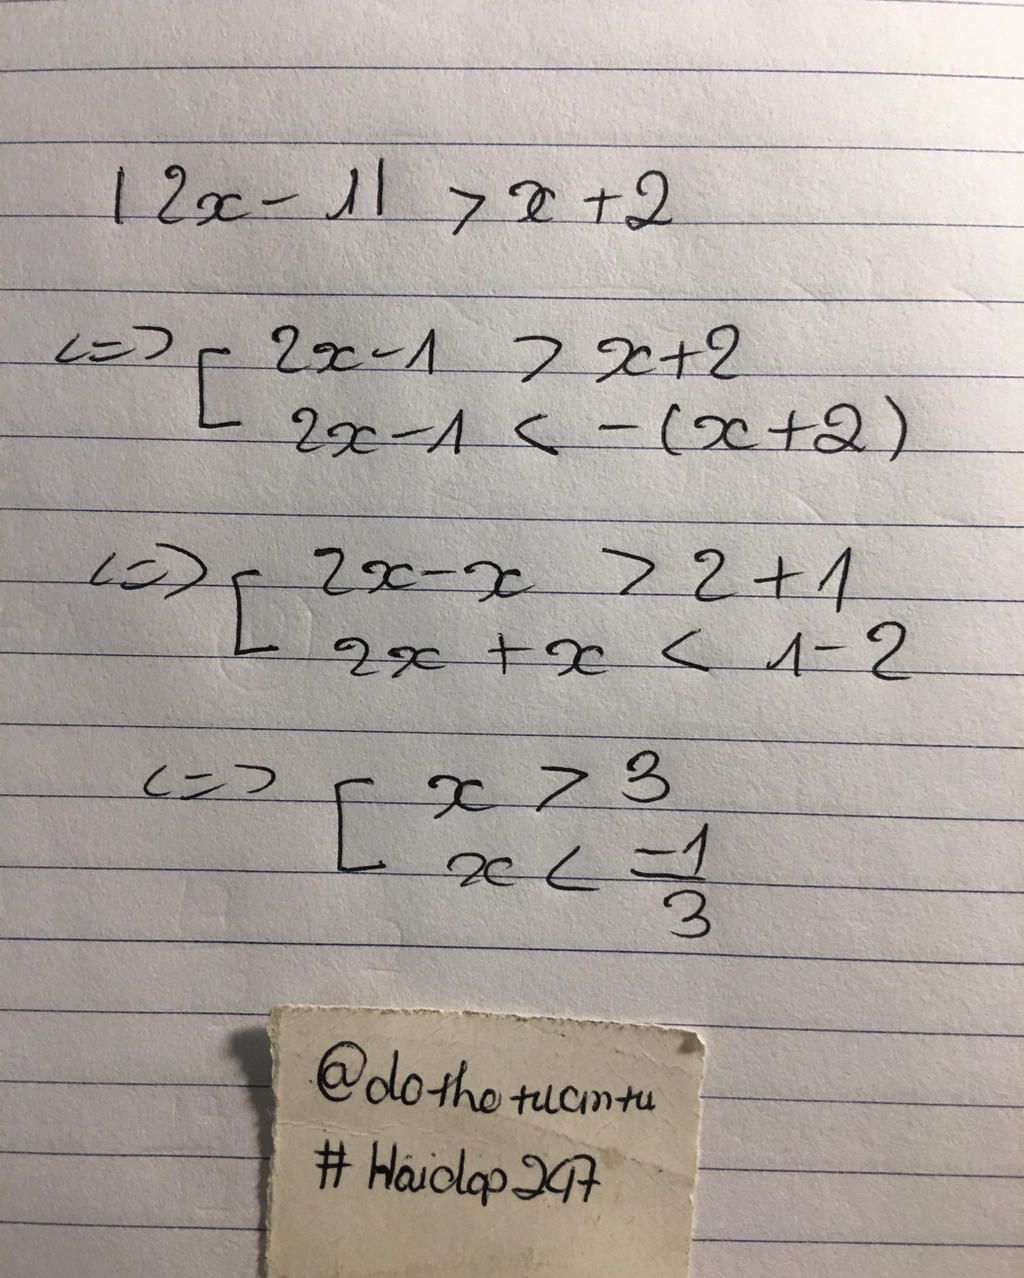 |2x-1| > x+2
<=> [ 2x-1 > x+2
2x-1 < -(x+2)
<=> [ 2x-x > 2+1
2x+x < 1-2
<=> [ x > 3
x < -1/3
@dothetucmtu
#Hoidap247